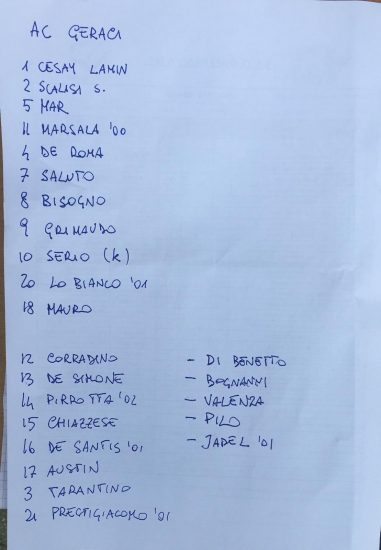 AC GERACI
1 CESAY LAMIN
2 SCALISI S.
5 MAR
11 MARSALA '00
4 DE ROMA
7 SALUTO
8 BISOGNO
9 GRIMAUDO
10 SERIO (K)
20 LO BIANCO '01
18 MAURO
12 CORRADINO
13 DE SIMONE
14 PIRROTTA '02
15 CHIAZZESE
16 DE SANTIS '01
17 AUSTIN
3 TARANTINO
21 PRESTIGIACOMO '01
- DI BENETTO
- BOGNANNI
- VALENZA
- PILO
- JADEL '01